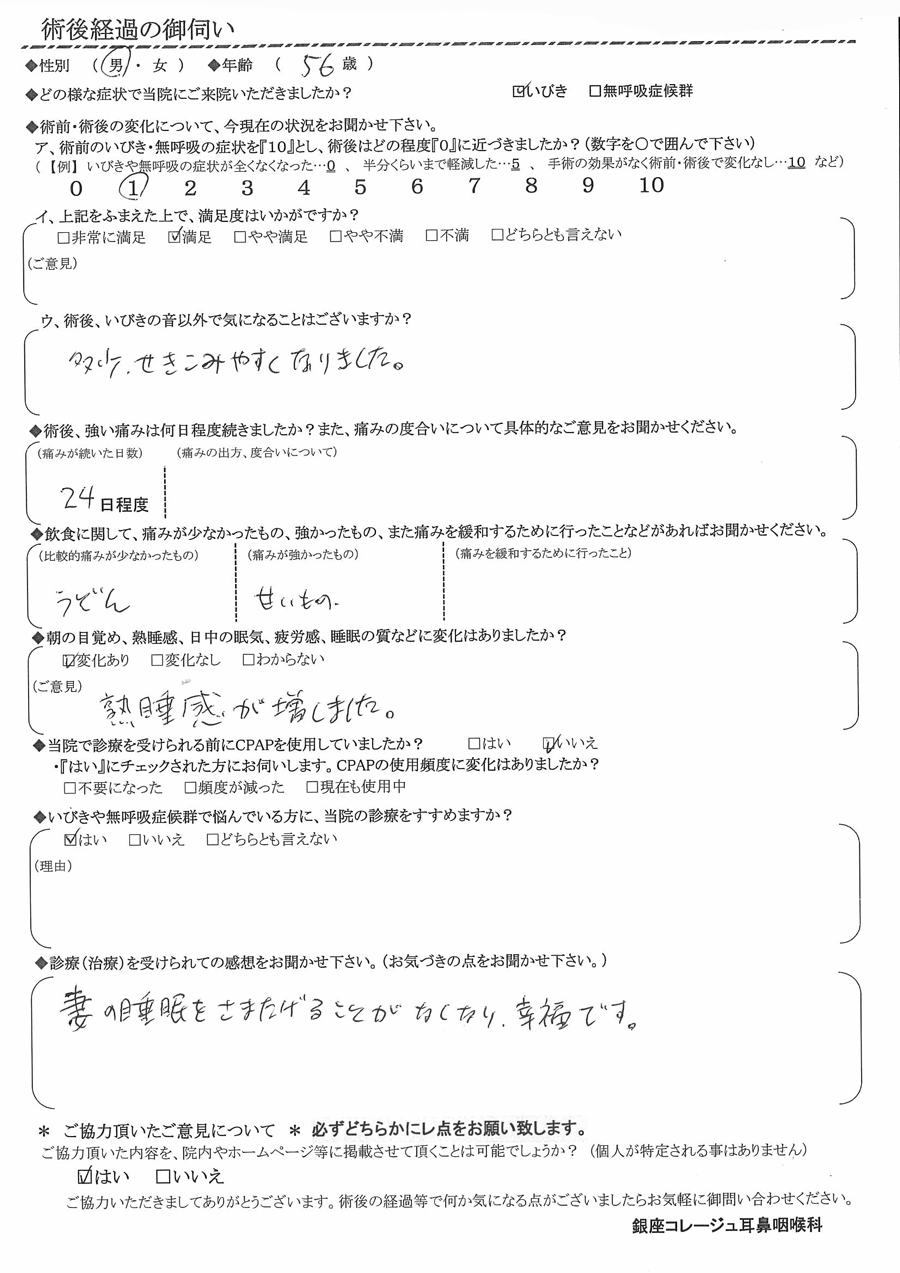 術後経過の御伺い
◆性別 （ 男 ・ 女 ） ◆年齢 （ 56 歳 ）
◆どの様な症状で当院にご来院いただきましたか？ ☑いびき □無呼吸症候群
◆術前・術後の変化について、今現在の状況をお聞かせ下さい。
ア、術前のいびき・無呼吸の症状を『10』とし、術後はどの程度『0』に近づきましたか？（数字を〇で囲んで下さい）
（ 【例】 いびきや無呼吸の症状が全くなくなった…0 、 半分くらいまで軽減した…5 、 手術の効果がなく術前・術後で変化なし…10 など）
0 1 2 3 4 5 6 7 8 9 10
イ、上記をふまえた上で、満足度はいかがですか？
□非常に満足 ☑満足 □やや満足 □やや不満 □不満 □どちらとも言えない
（ご意見）
ウ、術後、いびきの音以外で気になることはございますか？
多少、せきこみやすくなりました。
◆術後、強い痛みは何日程度続きましたか？また、痛みの度合いについて具体的なご意見をお聞かせください。
（痛みが続いた日数） （痛みの出方、度合いについて）
24日程度
◆飲食に関して、痛みが少なかったもの、強かったもの、また痛みを緩和するために行ったことなどがあればお聞かせください。
（比較的痛みが少なかったもの） （痛みが強かったもの） （痛みを緩和するために行ったこと）
うどん せいもの.
◆朝の目覚め、熟睡感、日中の眠気、疲労感、睡眠の質などに変化はありましたか？
☑変化あり □変化なし □わからない
（ご意見）
熟睡感が増しました。
◆当院で診療を受けられる前にCPAPを使用していましたか？ □はい ☑いいえ
・『はい』にチェックされた方にお伺いします。CPAPの使用頻度に変化はありましたか？
□不要になった □頻度が減った □現在も使用中
◆いびきや無呼吸症候群で悩んでいる方に、当院の診療をすすめますか？
☑はい □いいえ □どちらとも言えない
（理由）
◆診療（治療）を受けられての感想をお聞かせ下さい。（お気づきの点をお聞かせ下さい。）
妻の睡眠をさまたげることがなくなり、幸福です。
＊ ご協力頂いたご意見について ＊ 必ずどちらかにレ点をお願い致します。
ご協力頂いた内容を、院内やホームページ等に掲載させて頂くことは可能でしょうか？ （個人が特定される事はありません）
☑はい □いいえ
ご協力いただきましてありがとうございます。術後の経過等で何か気になる点がございましたらお気軽に御問い合わせください。
銀座コレージュ耳鼻咽喉科